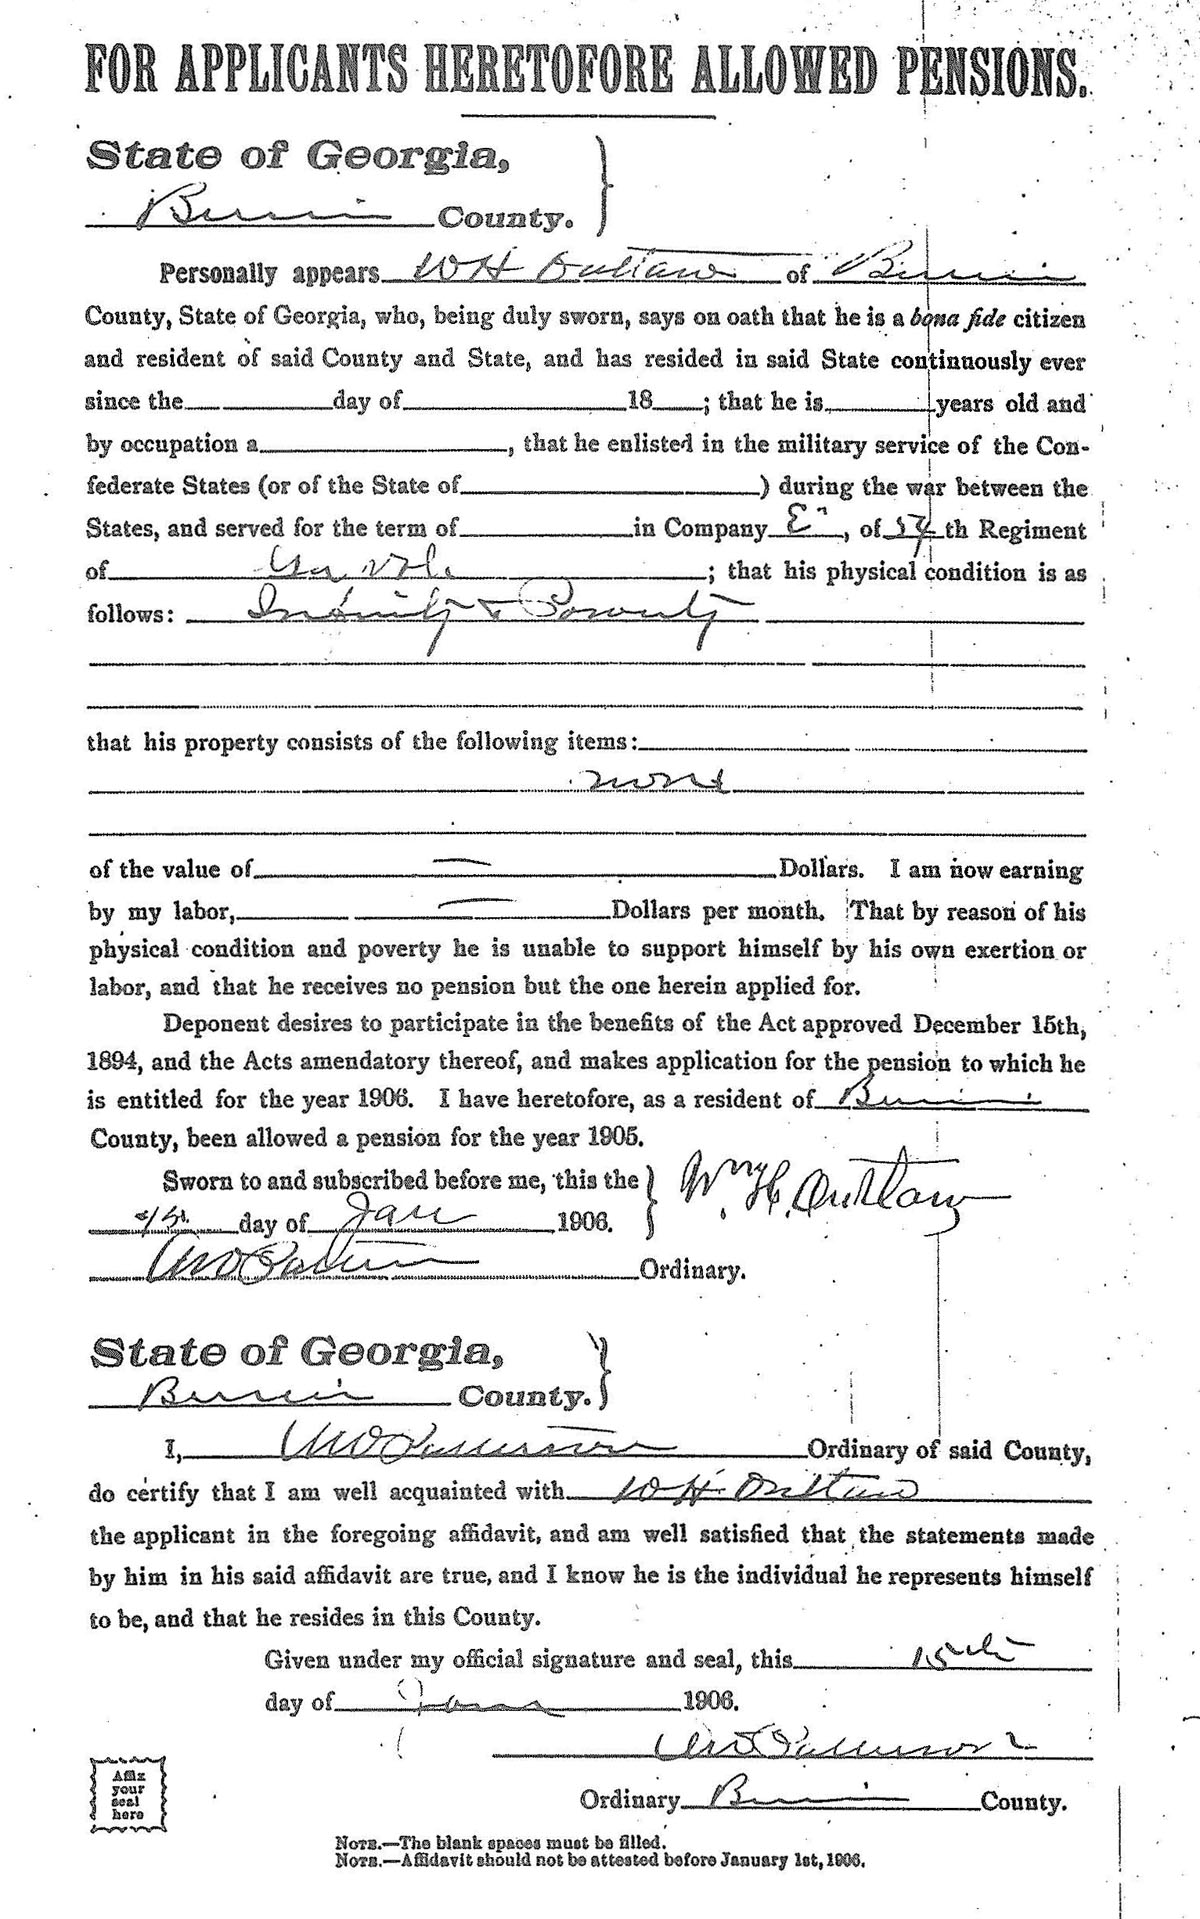 FOR APPLICANTS HERETOFORE ALLOWED PENSIONS.
State of Georgia,
Berrien County.
Personally appears W H Outlaw of Berrien
County, State of Georgia, who, being duly sworn, says on oath that he is a bona fide citizen
and resident of said County and State, and has resided in said State continuously ever
since the day of 18 ; that he is years old and
by occupation a , that he enlisted in the military service of the Con-
federate States (or of the State of ) during the war between the
States, and served for the term of in Company E, of 54th Regiment
of Ga Vol ; that his physical condition is as
follows: Infirmity & Poverty
that his property consists of the following items:
none
of the value of — Dollars. I am now earning
by my labor, — Dollars per month. That by reason of his
physical condition and poverty he is unable to support himself by his own exertion or
labor, and that he receives no pension but the one herein applied for.
Deponent desires to participate in the benefits of the Act approved December 15th,
1894, and the Acts amendatory thereof, and makes application for the pension to which he
is entitled for the year 1906. I have heretofore, as a resident of Berrien
County, been allowed a pension for the year 1905.
Sworn to and subscribed before me, this the Wm H. Outlaw
day of Jan 1906.
Patterson Ordinary.
State of Georgia,
Berrien County.
I, Patterson Ordinary of said County,
do certify that I am well acquainted with W H Outlaw
the applicant in the foregoing affidavit, and am well satisfied that the statements made
by him in his said affidavit are true, and I know he is the individual he represents himself
to be, and that he resides in this County.
Given under my official signature and seal, this 15th
day of Jan 1906.
Patterson
Affix
your
seal
here
Ordinary Berrien County.
NOTE.—The blank spaces must be filled.
NOTE.—Affidavit should not be attested before January 1st, 1906.